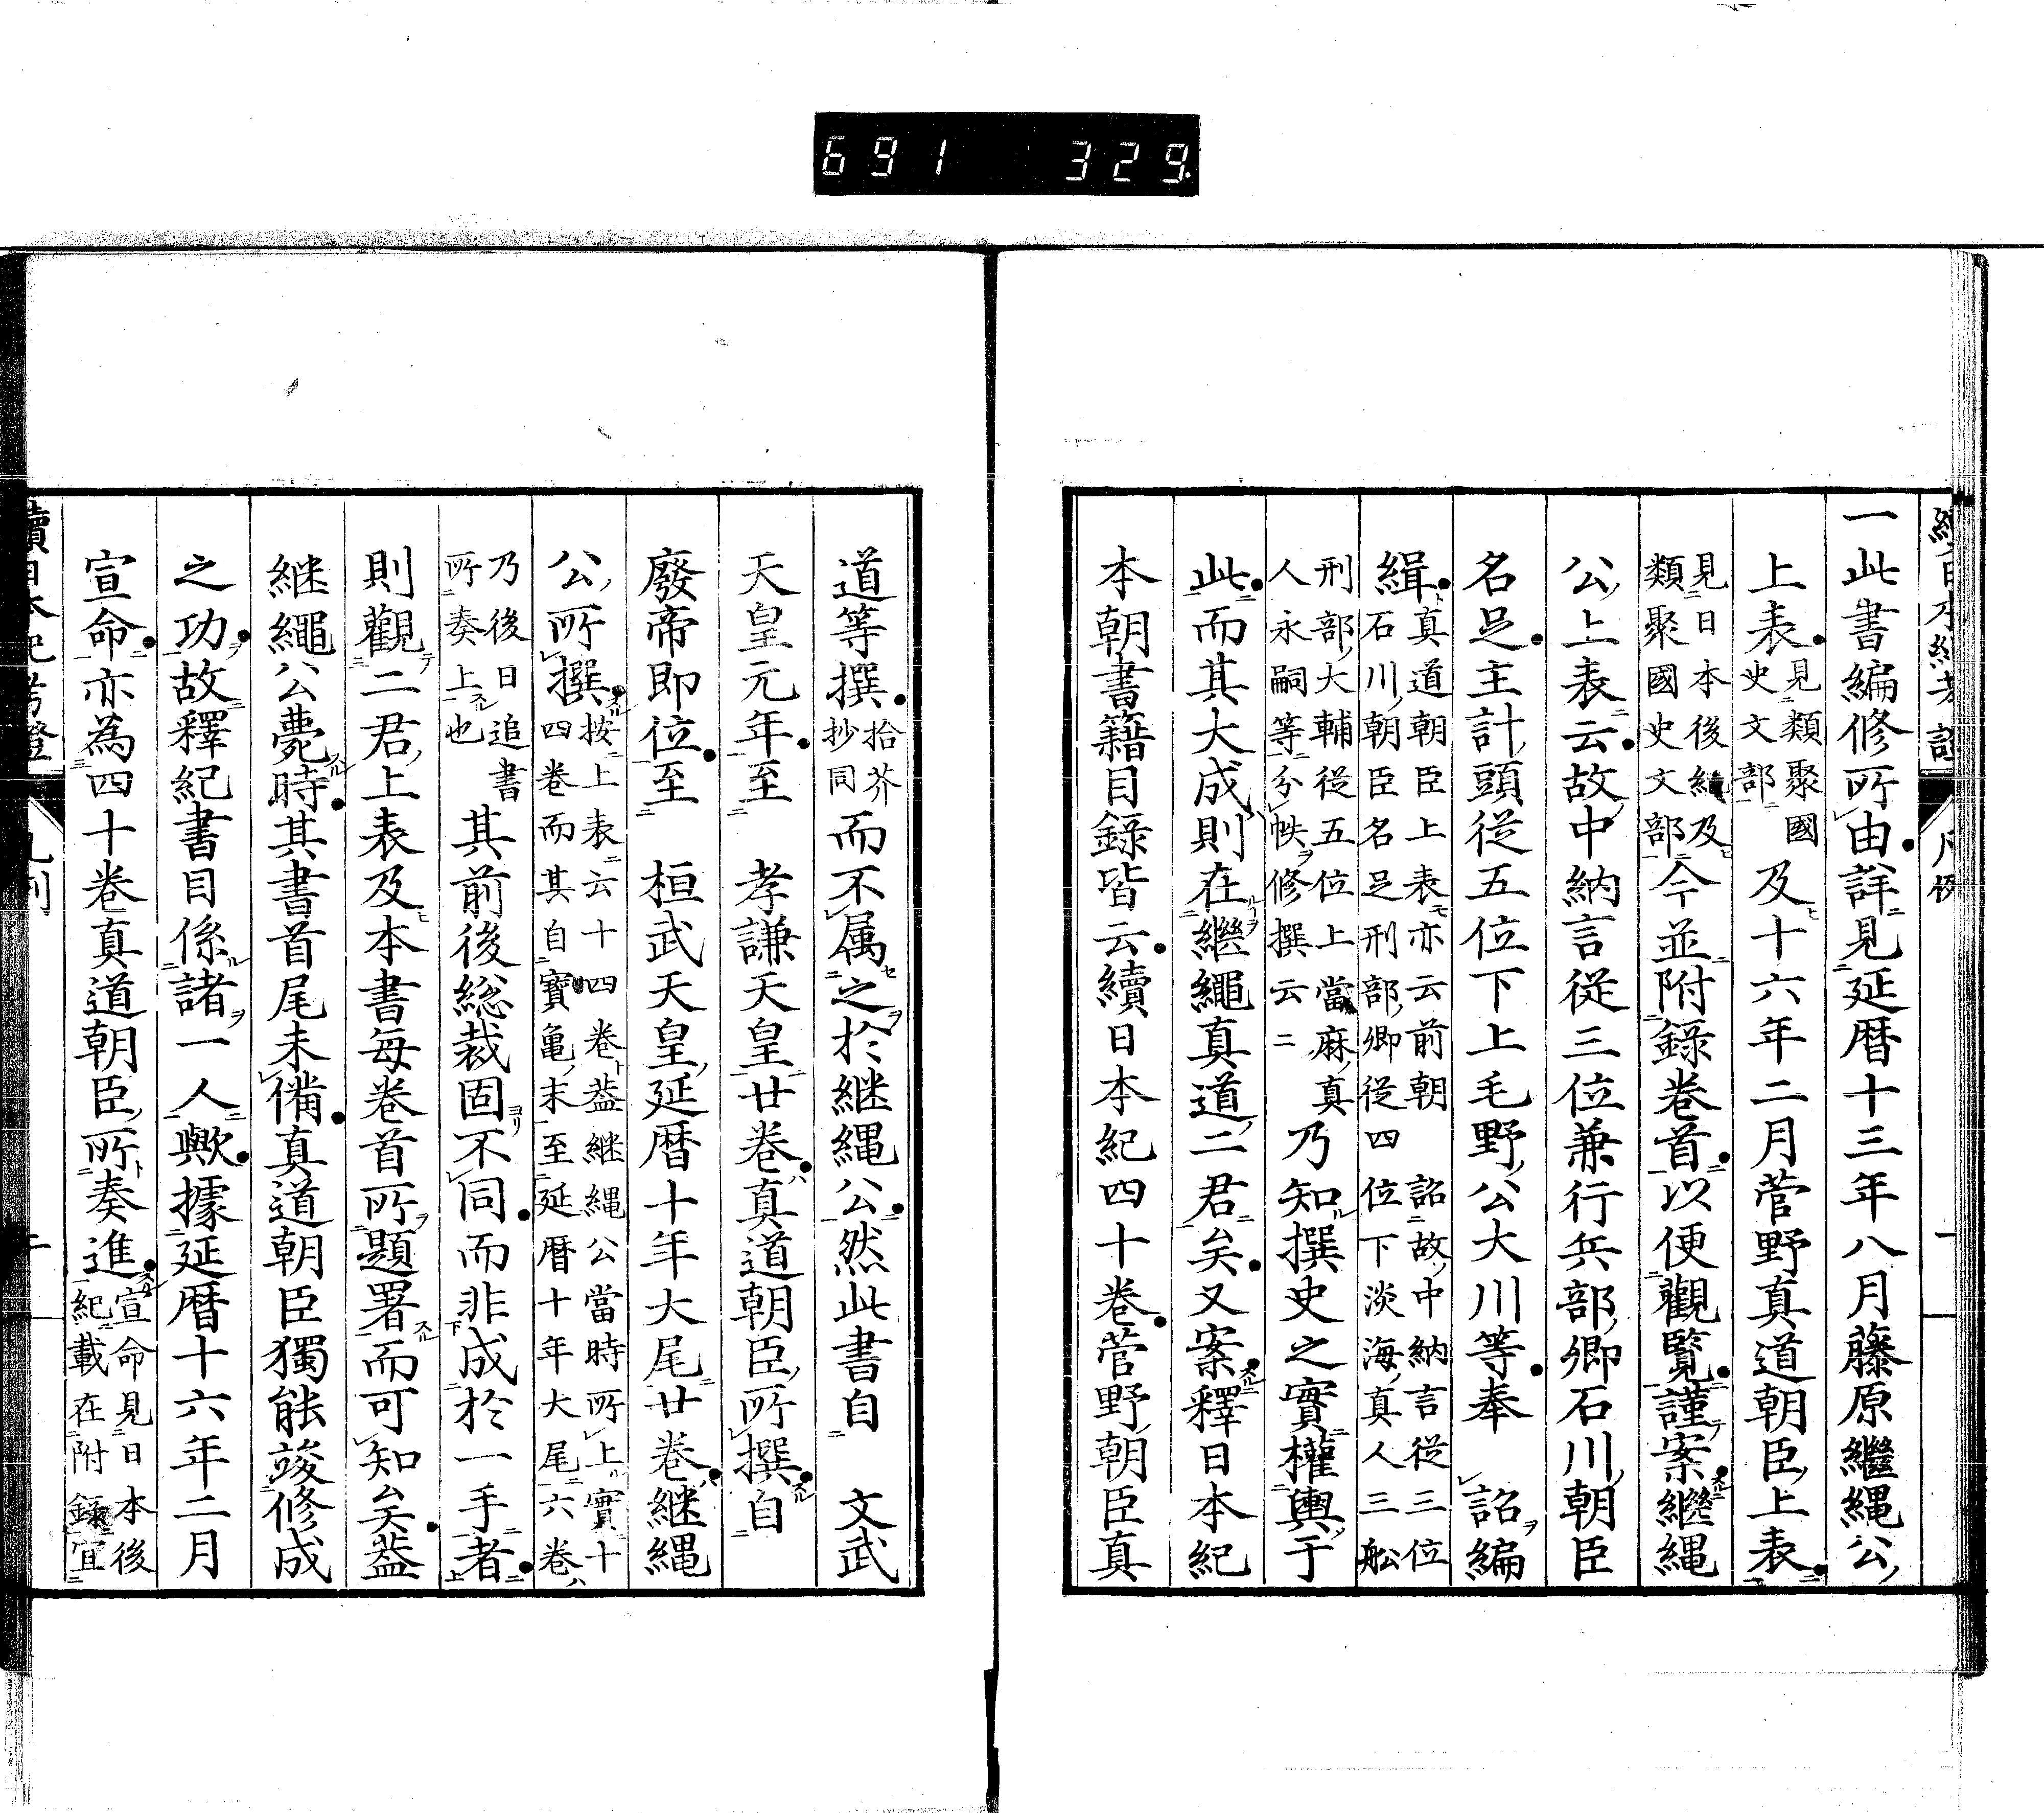 691 329
一此書編修所由詳見延暦十三年八月藤原繼縄公
上表見類聚國史文部及十六年二月菅野真道朝臣上表
見日本後紀及類聚國史文部今並附錄卷首以便觀覧謹案繼縄
公上表云故中納言從三位兼行兵部卿石川朝臣
名足主計頭從五位下上毛野公大川等奉 詔編
緝真道朝臣上表亦云前朝 詔故中納言從三位石川朝臣名足刑部卿從四位下淡海真人三舩
刑部大輔從五位上當麻真人永嗣等分帙修撰云云乃知撰史之實權輿于
此而其大成則在繼繩真道二君矣又案釋日本紀
本朝書籍目錄皆云續日本紀四十卷菅野朝臣真
道等撰拾芥抄同而不属之於継縄公然此書自 文武
天皇元年至 孝謙天皇廿卷真道朝臣所撰自
廢帝即位至 桓武天皇延暦十年大尾廿卷継縄
公所撰按上表云十四卷蓋継縄公當時所上實十四卷而其自寶亀末至延暦十年大尾六卷
乃後日追書所奏上也其前後総裁固不同而非成於一手者
則觀二君上表及本書每卷首所題署而可知矣蓋
継繩公薨時其書首尾未備真道朝臣獨能竣修成
之功故釋紀書目係諸一人歟據延暦十六年二月
宣命亦為四十卷真道朝臣所奏進宣命見日本後紀載在附錄宜